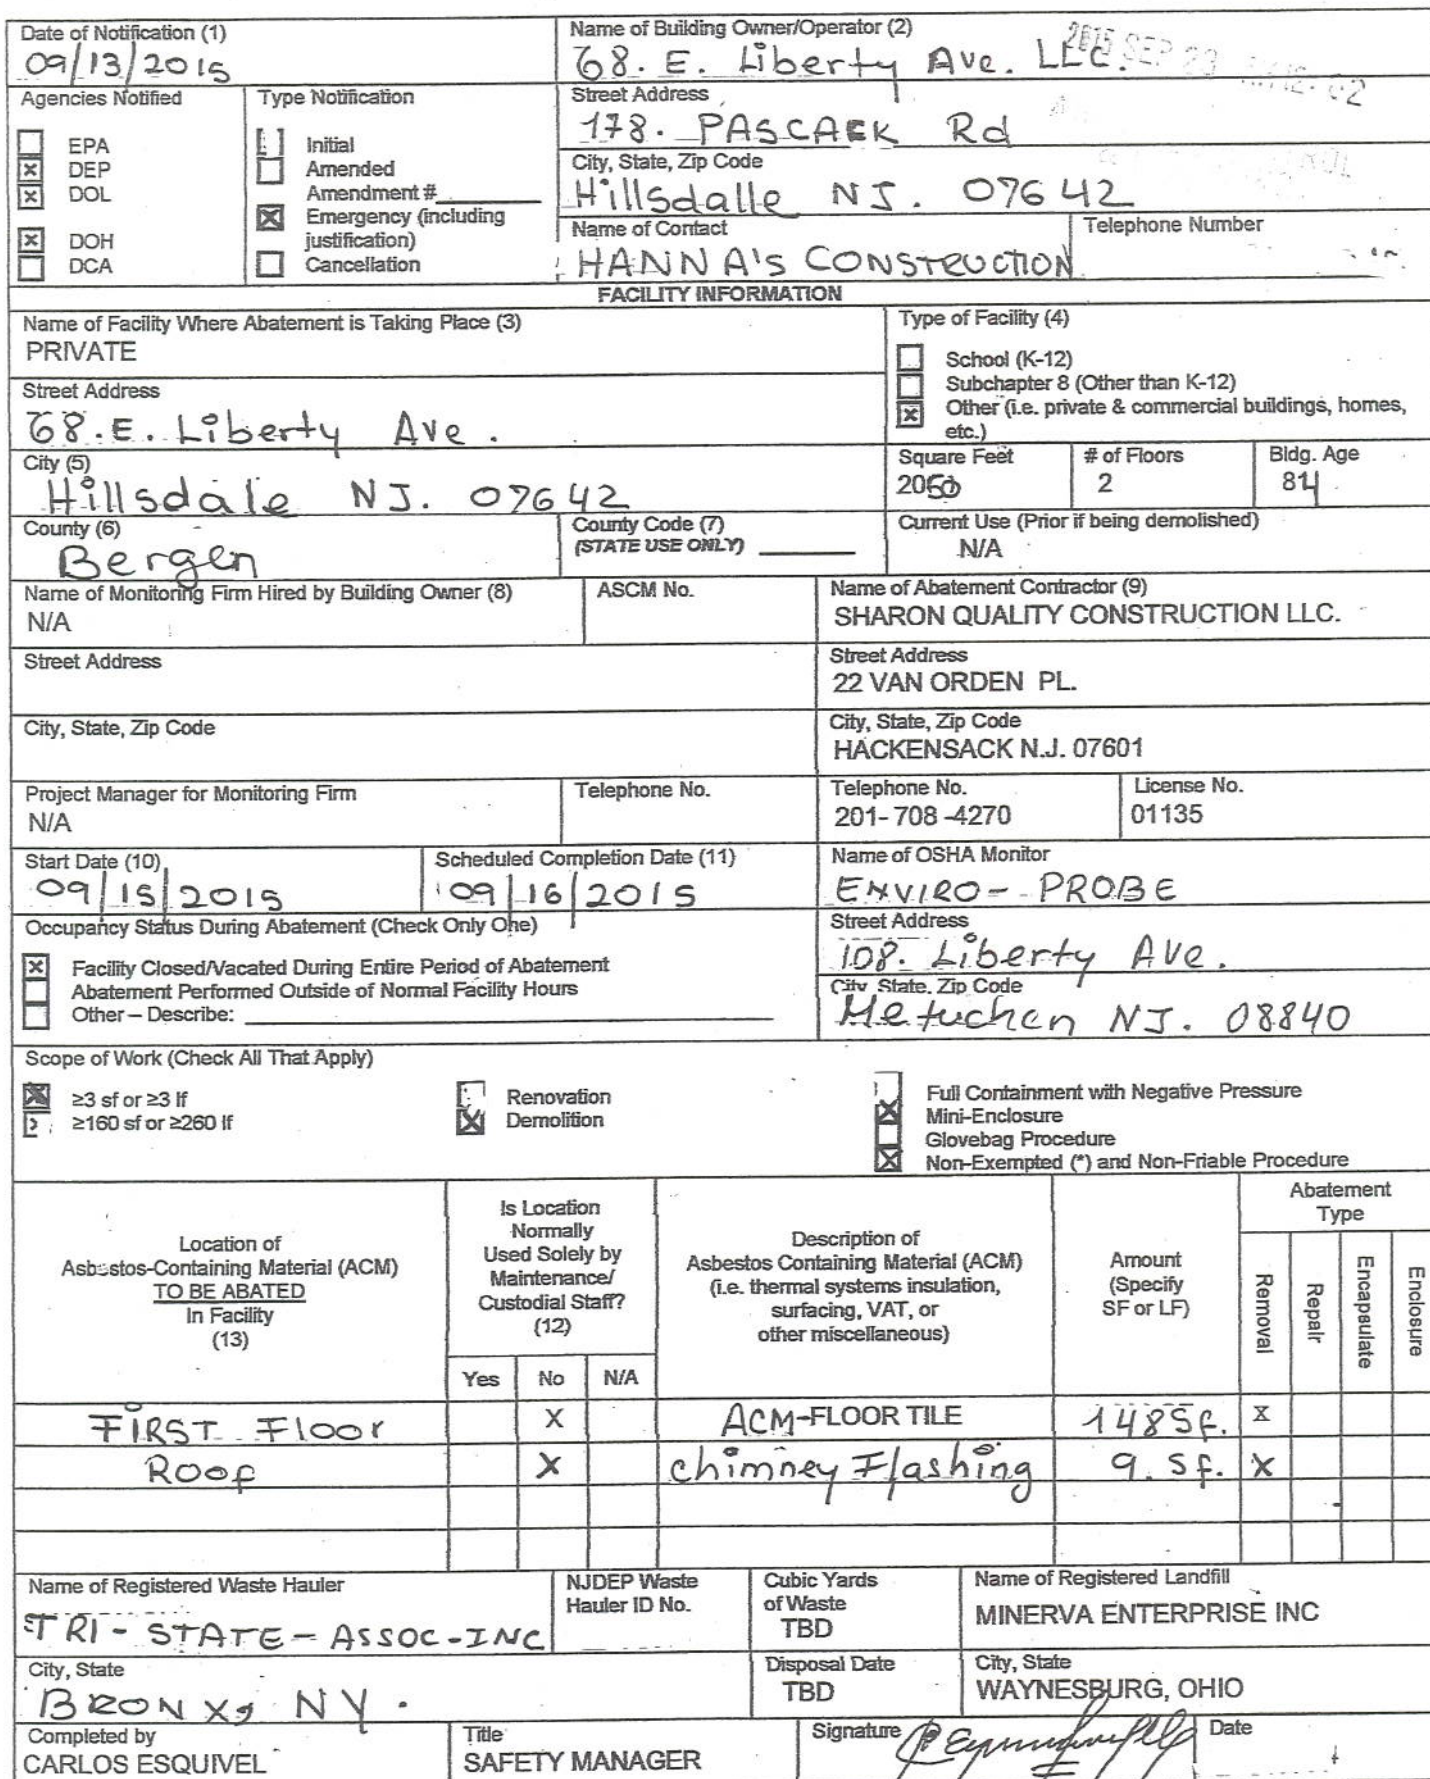 Date of Notification (1)
09/13/2015
Name of Building Owner/Operator (2)
68. E. Liberty Ave. LLC.
2015 SEP 23
Agencies Notified
EPA
DEP
DOL
DOH
DCA
Type Notification
Initial
Amended
Amendment #
Emergency (including
justification)
Cancellation
Street Address
178. PASCAEK Rd
City, State, Zip Code
Hillsdalle NJ. 07642
Name of Contact
HANNA's CONSTRUCTION
Telephone Number
FACILITY INFORMATION
Name of Facility Where Abatement is Taking Place (3)
PRIVATE
Type of Facility (4)
School (K-12)
Subchapter 8 (Other than K-12)
Other (i.e. private & commercial buildings, homes,
etc.)
Street Address
68. E. Liberty Ave.
City (5)
Hillsdale NJ. 07642
Square Feet
2050
# of Floors
2
Bldg. Age
84
County (6)
Bergen
County Code (7)
(STATE USE ONLY)
Current Use (Prior if being demolished)
N/A
Name of Monitoring Firm Hired by Building Owner (8)
N/A
ASCM No.
Name of Abatement Contractor (9)
SHARON QUALITY CONSTRUCTION LLC.
Street Address
Street Address
22 VAN ORDEN PL.
City, State, Zip Code
City, State, Zip Code
HACKENSACK N.J. 07601
Project Manager for Monitoring Firm
N/A
Telephone No.
Telephone No.
201-708-4270
License No.
01135
Start Date (10)
09/15/2015
Scheduled Completion Date (11)
09/16/2015
Name of OSHA Monitor
ENVIRO-PROBE
Occupancy Status During Abatement (Check Only One)
Facility Closed/Vacated During Entire Period of Abatement
Abatement Performed Outside of Normal Facility Hours
Other – Describe:
Street Address
108. Liberty Ave.
City, State, Zip Code
Metuchen NJ. 08840
Scope of Work (Check All That Apply)
≥3 sf or ≥3 lf
≥160 sf or ≥260 lf
Renovation
Demolition
Full Containment with Negative Pressure
Mini-Enclosure
Glovebag Procedure
Non-Exempted (*) and Non-Friable Procedure
Location of
Asbestos-Containing Material (ACM)
TO BE ABATED
In Facility
(13)
Is Location
Normally
Used Solely by
Maintenance/
Custodial Staff?
(12)
Yes No N/A
Description of
Asbestos Containing Material (ACM)
(i.e. thermal systems insulation,
surfacing, VAT, or
other miscellaneous)
Amount
(Specify
SF or LF)
Abatement
Type
Removal
Repair
Encapsulate
Enclosure
FIRST Floor X ACM-FLOOR TILE 148 Sf. X
Roof X chimney Flashing 9. Sf. X
Name of Registered Waste Hauler
TRI-STATE-ASSOC-INC
NJDEP Waste
Hauler ID No.
Cubic Yards
of Waste
TBD
Name of Registered Landfill
MINERVA ENTERPRISE INC
City, State
BRONX, NY.
Disposal Date
TBD
City, State
WAYNESBURG, OHIO
Completed by
CARLOS ESQUIVEL
Title
SAFETY MANAGER
Signature
Date